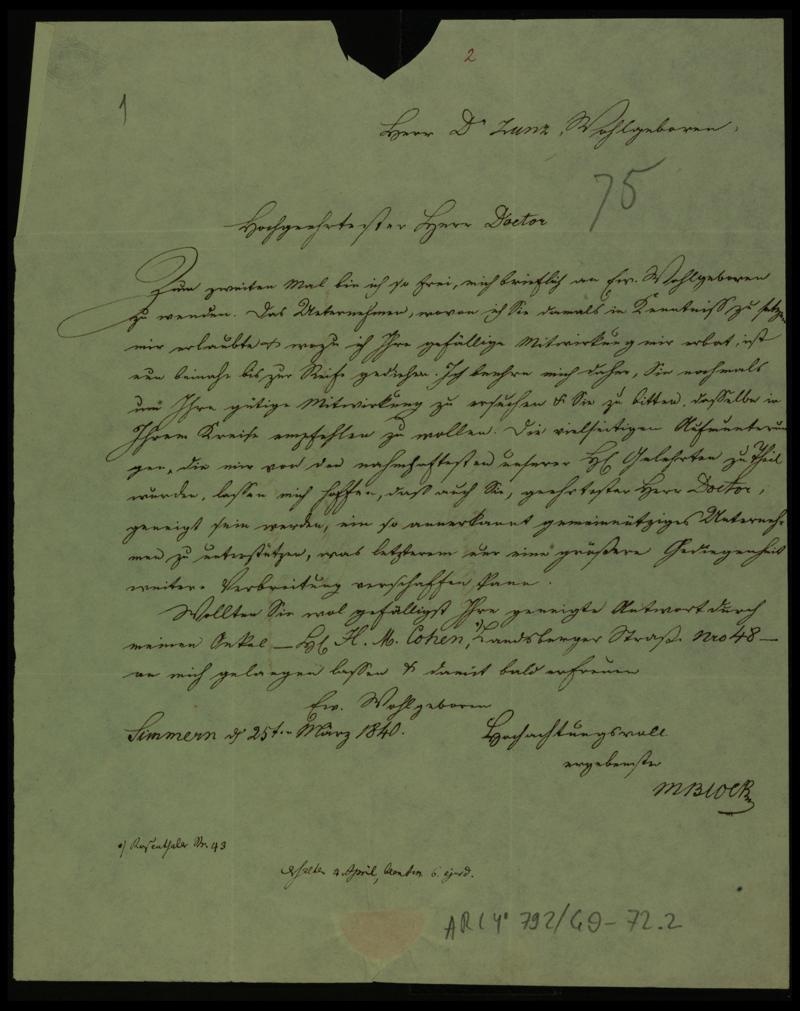 2
1
Herr Dr Zunz, Wohlgeboren,
75
Hochgeehrtester Herr Doctor
Zum zweiten Mal bin ich so frei, mich brieflich an Ew. Wohlgeboren
zu wenden. Das Unternehmen, wovon ich Sie damals in Kenntniss zu setzen
mir erlaubte & wozu ich Ihre gefällige Mitwirkung mir erbat, ist
nun beinahe bis zur Reife gediehen. Ich beehre mich daher, Sie nochmals
um Ihre gütige Mitwirkung zu ersuchen & Sie zu bitten, dasselbe in
Ihrem Kreise empfehlen zu wollen. Die vielseitigen Aufmunterun
gen, die mir von den nahmhaftesten unserer H. Gelehrten zu Theil
wurden, lassen mich hoffen, dass auch Sie, geehrtester Herr Doctor,
geneigt sein werden, ein so anerkannt gemeinnütziges Unterneh-
men zu unterstützen, was letzterem nur eine größere Gediegenheit
weitere Verbreitung verschaffen kann.
Wollten Sie wol gefälligst Ihre geneigte Antwort durch
meinen Onkel — H. H. M. Cohen, Landsberger Straß. Nro 48 —
an mich gelangen lassen & damit bald erfreuen
Ew. Wohlgeboren
Simmern d 25ten März 1840.
Hochachtungsvoll
ergebenster
M Block
Rosenthaler Str. 43
Erhalten 2. April, beantw. 6. ejusd.
AR C 4° 792/G9-72.2